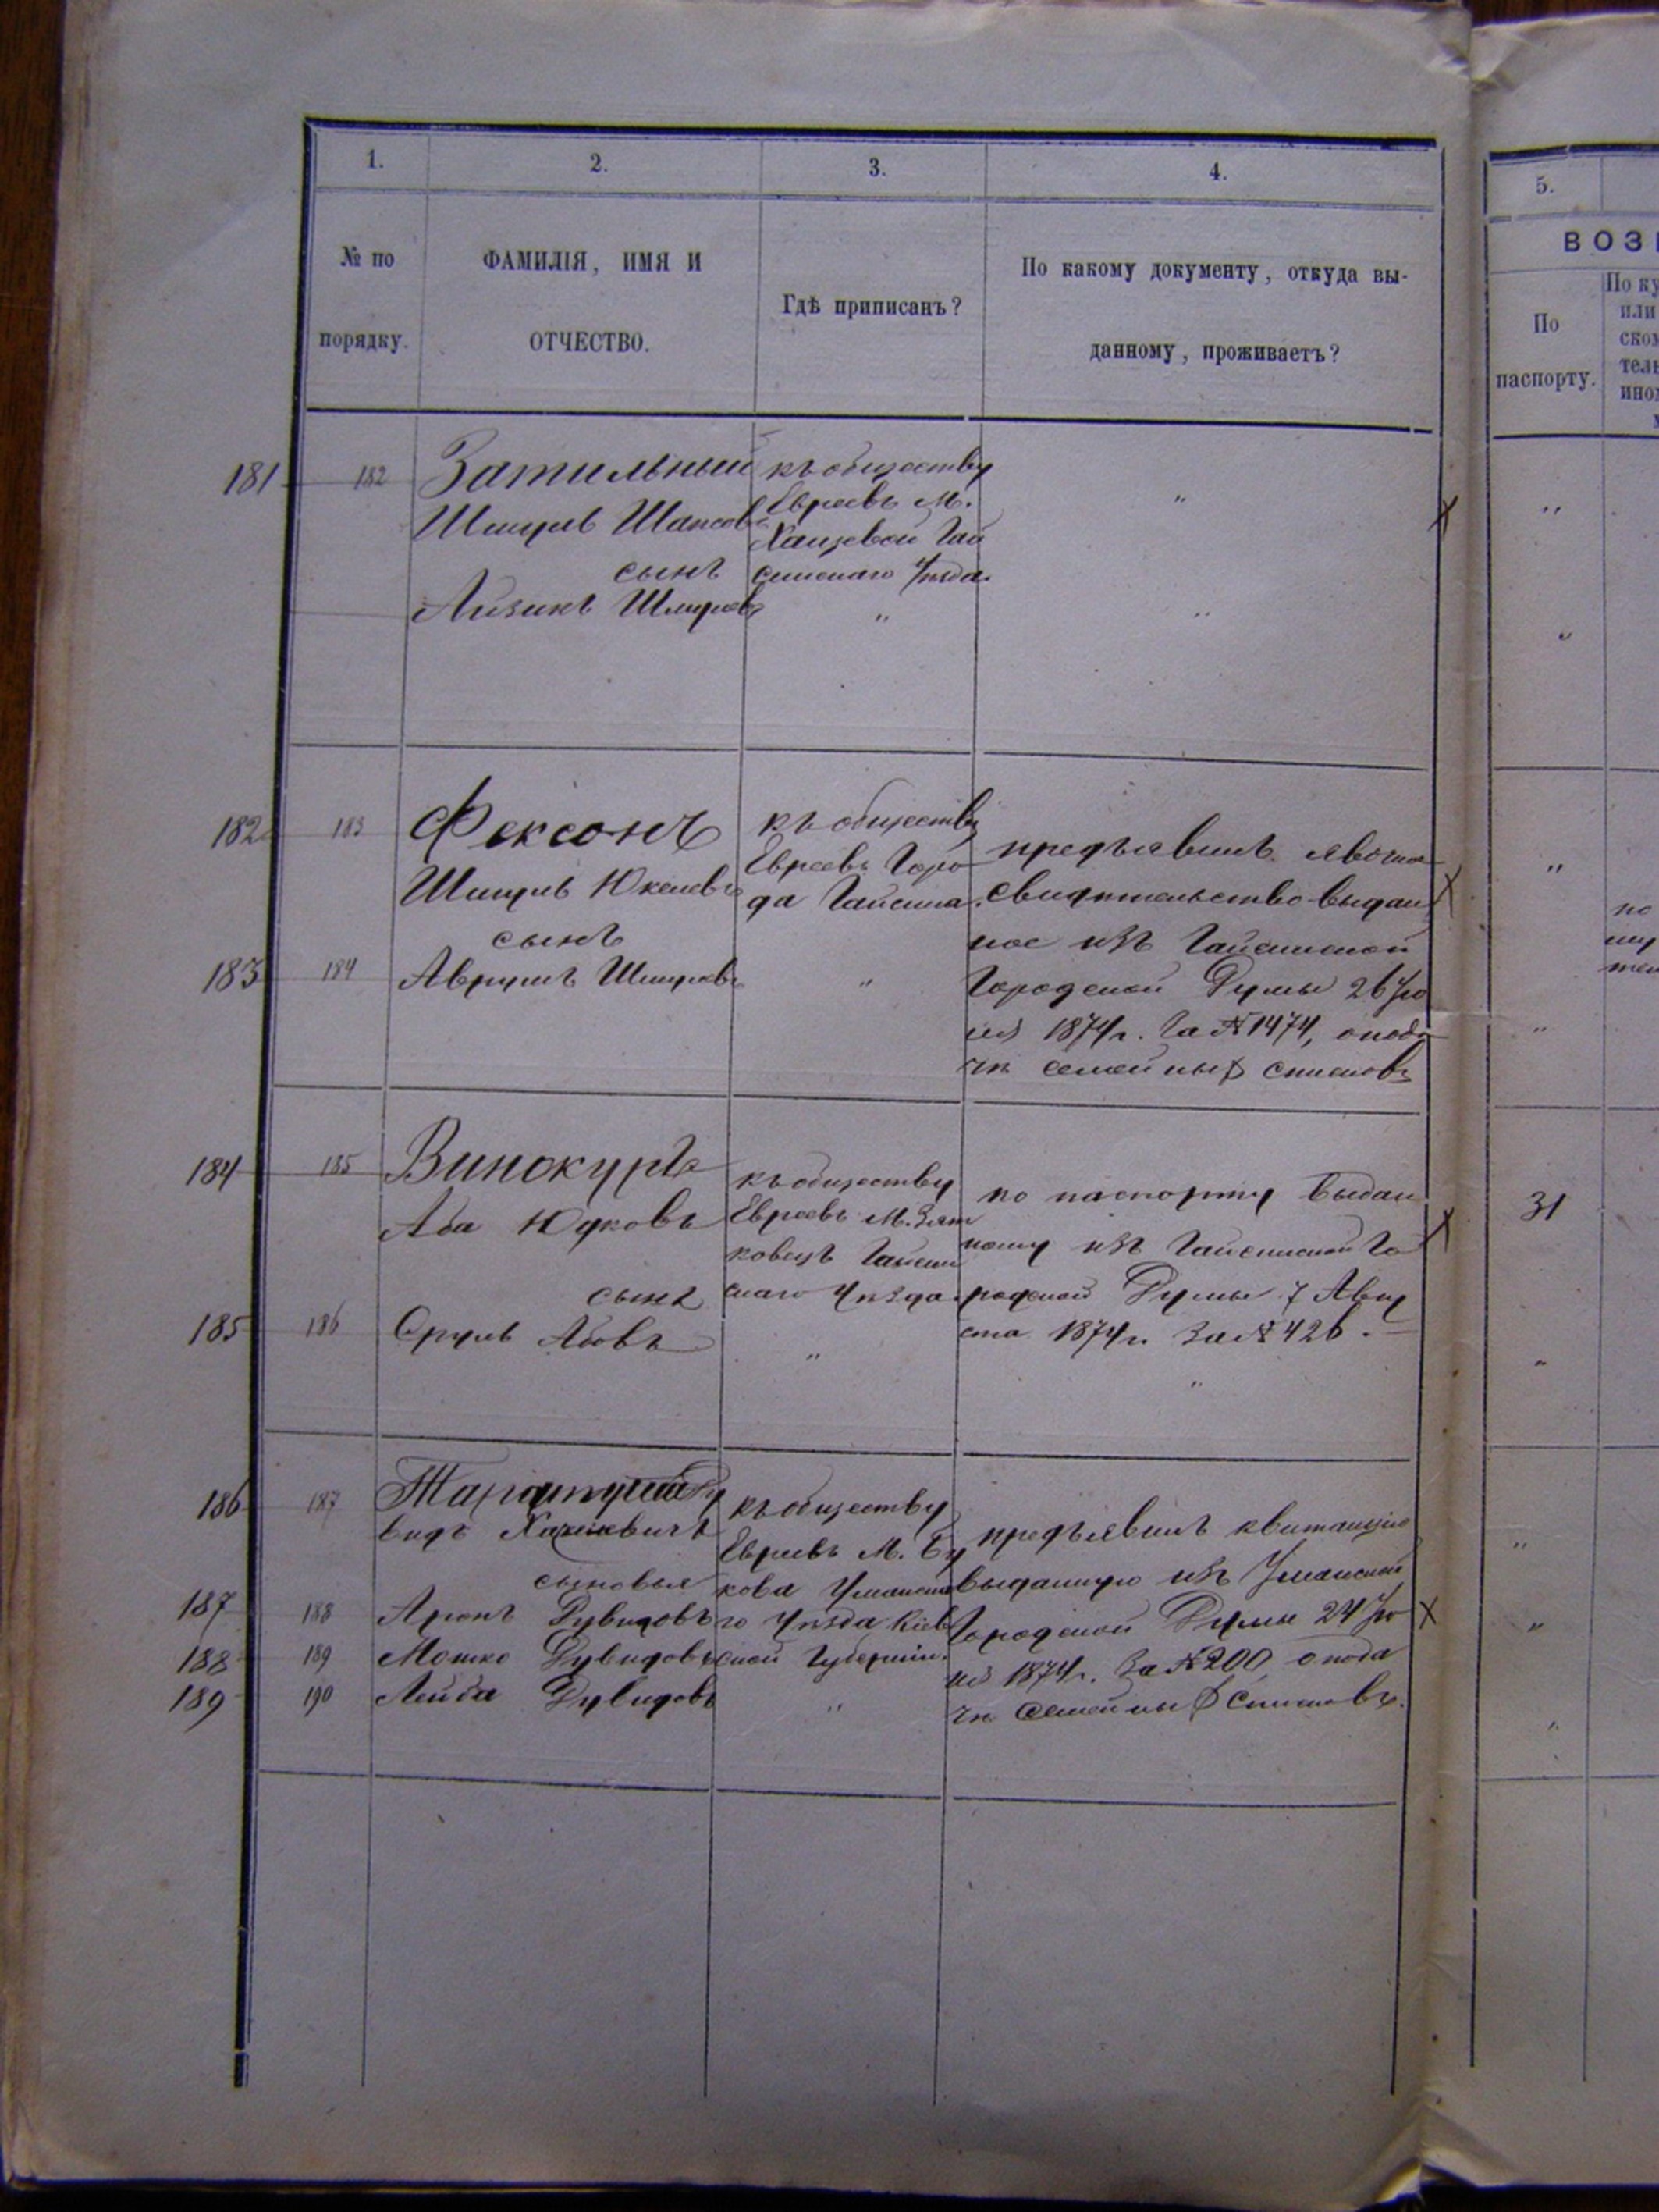 1.
2.
3.
4.
5.
№ по
порядку.
ФАМИЛІЯ, ИМЯ И
ОТЧЕСТВО.
Гдѣ приписанъ?
По какому документу, откуда вы-
данному, проживаетъ?
ВОЗ
По
паспорту.
По ку
или
ском
тель
иног
181
182
Затильный
Шмуль Шапсовъ
сынъ
Айзикъ Шмулевъ
къ обществу
Евреевъ М.
Хащевой Гай
синскаго Уѣзда
"
"
"
"
"
182
183
Фексонъ
Шмуль Юкелевъ
сынъ
183
184
Аврумъ Шмулевъ
къ обществу
Евреевъ Горо
да Гайсина.
"
предъявилъ явочное
свидѣтельство выдан
ное изъ Гайсинской
Городской Думы 26 Iю
ня 1874 г. За № 1474, о пода
чѣ семейныхъ списковъ
"
"
184
185
Винокуръ
Аба Юдковъ
сынъ
185
186
Сруль Абовъ
къ обществу
Евреевъ М. Зят
ковецъ Гайсин
скаго Уѣзда.
"
по паспорту выдан
ному изъ Гайсинской Го
родской Думы 7 Авгу
ста 1874 г. За № 426.
"
31
"
186
187
видъ
сыновья
187
188
Аронъ Дувидовъ
188
189
Мошко Дувидовъ
189
190
Лейба Дувидовъ
къ обществу
Евреевъ М. Бу
кова Уманска
го Уѣзда Кіев
ской Губерніи.
"
предъявилъ квитанцію
выданную изъ Уманской
Городской Думы 24 Iю
ня 1874 г. За № 200, о пода
чѣ семейныхъ списковъ.
"
"
"